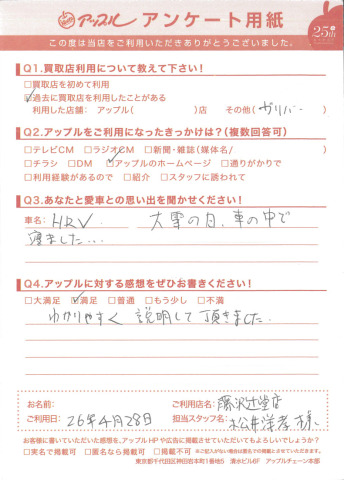 アップル アンケート用紙
25th
この度は当店をご利用いただきありがとうございました。
Q1.買取店利用について教えて下さい!
□買取店を初めて利用
☑過去に買取店を利用したことがある
利用した店舗: アップル( )店 その他( ガリバー )
Q2.アップルをご利用になったきっかけは?(複数回答可)
□テレビCM □ラジオCM □新聞・雑誌(媒体名/ )
□チラシ □DM ☑アップルのホームページ □通りがかりで
□利用経験があるので □紹介 □スタッフに誘われて
Q3.あなたと愛車との思い出を聞かせください!
車名: HRV 大雪の日、車の中で
寝ました...
Q4.アップルに対する感想をぜひお書きください!
□大満足 ☑満足 □普通 □もう少し □不満
わかりやすく説明して頂きました.
お名前: ご利用店名: 藤沢辻堂店
ご利用日: 26年4月28日 担当スタッフ名: 松井洋孝様
お客様に書いていただいた感想を、アップルHPや広告に掲載させていただいてもよろしいでしょうか?
□実名で掲載可 □匿名なら掲載可 □掲載不可 ※ご記入がない場合は匿名での掲載とさせていただきます。
東京都千代田区神田岩本町1番地5 清水ビル6F アップルチェーン本部